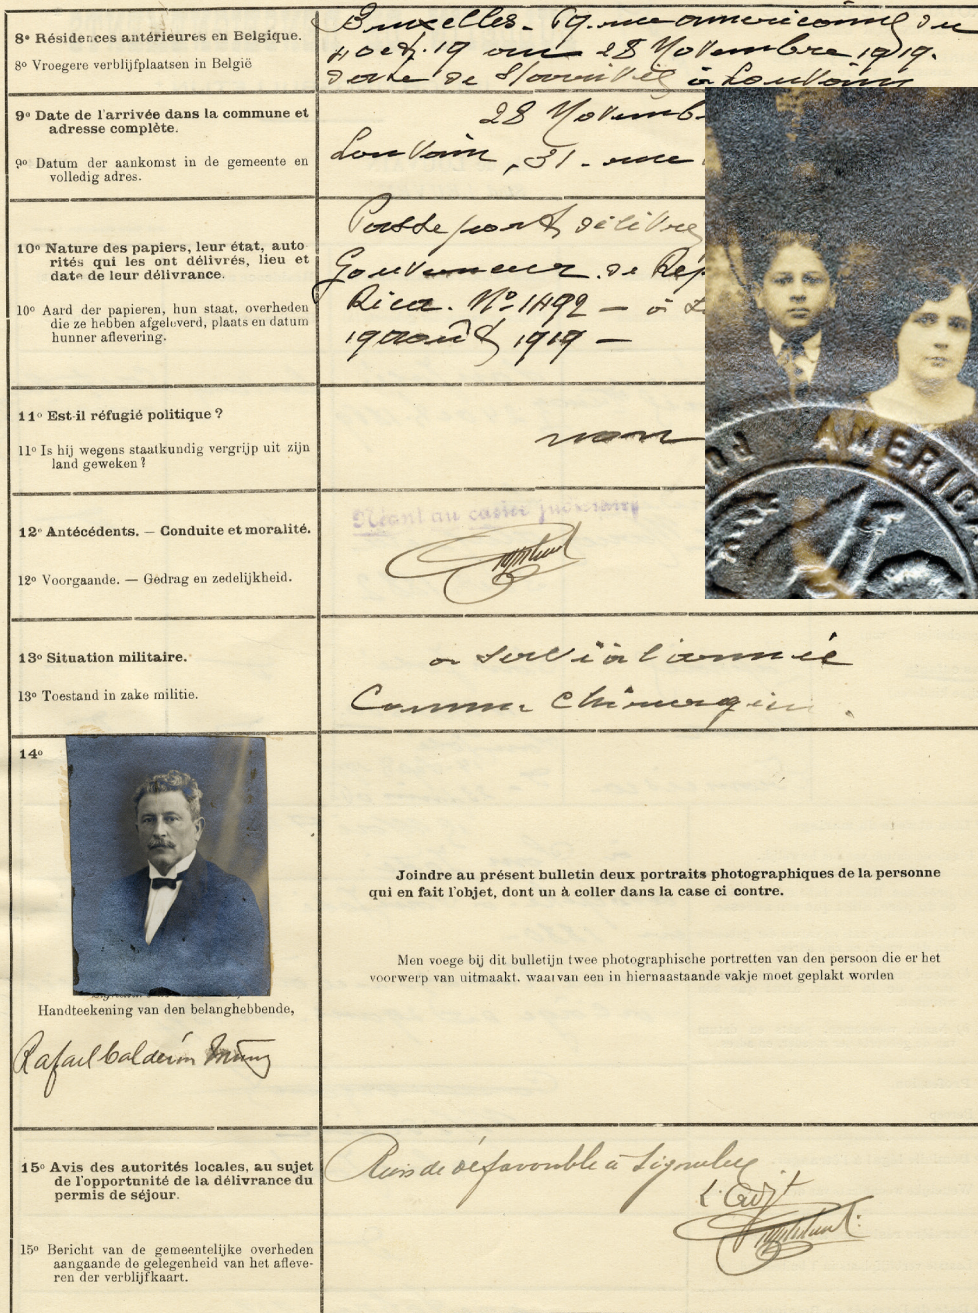 8º Résidences antérieures en Belgique.
8º Vroegere verblijfplaatsen in België
Bruxelles. 79. rue américaine du
4 oct. 19 au 28 Novembre 1919.
à Louvain
9º Date de l'arrivée dans la commune et
adresse complète.
9º Datum der aankomst in de gemeente en
volledig adres.
28 Novemb
Louvain, 31. rue
10º Nature des papiers, leur état, auto
rités qui les ont délivrés, lieu et
date de leur délivrance.
10º Aard der papieren, hun staat, overheden
die ze hebben afgeleverd, plaats en datum
hunner aflevering.
Passeport délivré
Gouverneur de Rép
Rica. Nº 1492 – à
19 août 1919 –
11º Est-il réfugié politique ?
11º Is hij wegens staatkundig vergrijp uit zijn
land geweken ?
non
12º Antécédents. — Conduite et moralité.
12º Voorgaande. — Gedrag en zedelijkheid.
Néant au casier judiciaire
AMERIC
13º Situation militaire.
13º Toestand in zake militie.
a servi à l'armée
Comme chirurgien.
14º
Joindre au présent bulletin deux portraits photographiques de la personne
qui en fait l'objet, dont un à coller dans la case ci contre.
Men voege bij dit bulletijn twee photographische portretten van den persoon die er het
voorwerp van uitmaakt, waarvan een in hiernaastaande vakje moet geplakt worden
Handteekening van den belanghebbende,
Rafael Calderón Muñoz
15º Avis des autorités locales, au sujet
de l'opportunité de la délivrance du
permis de séjour.
15º Bericht van de gemeentelijke overheden
aangaande de gelegenheid van het afleve-
ren der verblijfkaart.
Rien de défavorable à signaler